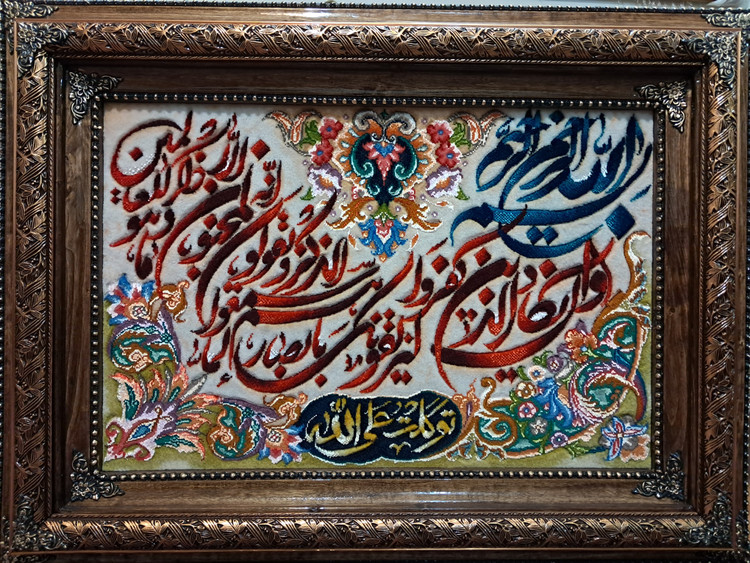 بسم الله الرحمن الرحیم
وان یکاد الذین کفروا لیزلقونک بابصارهم لما سمعوا الذکر و یقولون انه لمجنون و ما هو الا ذکر للعالمین
توکلت علی الله